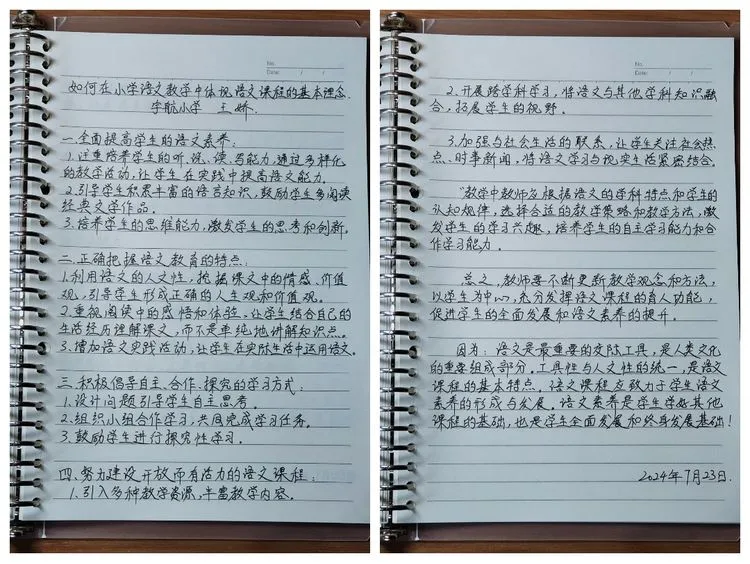 No.
Date: / /
如何在小学语文教学中体现语文课程的基本理念.
宇航小学 王娇.
一.全面提高学生的语文素养:
1.注重培养学生的听、说、读、写能力,通过多样化
的教学活动,让学生在实践中提高语文能力.
2.引导学生积累丰富的语言知识,鼓励学生多阅读
经典文学作品.
3.培养学生的思维能力,激发学生的思考和创新.
二.正确把握语文教育的特点:
1.利用语文的人文性,挖掘课文中的情感、价值
观,引导学生形成正确的人生观和价值观.
2.重视阅读中的感悟和体验、让学生结合自己的
生活经历理解课文,而不是单纯地讲解知识点.
3.增加语文实践活动,让学生在实际生活中运用语文.
三.积极倡导自主、合作、探究的学习方式:
1.设计问题引导学生自主思考.
2.组织小组合作学习,共同完成学习任务.
3.鼓励学生进行探究性学习.
四.努力建设开放而有活力的语文课程:
1.引入多种教学资源,丰富教学内容.
No.
Date: / /
2.开展跨学科学习,将语文与其他学科知识融
合,拓展学生的视野.
3.加强与社会生活的联系,让学生关注社会热
点、时事新闻,将语文学习与现实生活紧密结合.
教学中教师要根据语文的学科特点和学生的
认知规律,选择合适的教学策略和教学方法,激
发学生的学习兴趣,培养学生的自主学习能力和合
作学习能力.
总之,教师要不断更新教学观念和方法,
以学生为中心,充分发挥语文课程的育人功能,
促进学生的全面发展和语文素养的提升.
因为:语文是最重要的交际工具,是人类文化
的重要组成部分.工具性与人文性的统一,是语文
课程的基本特点.语文课程应致力于学生语文
素养的形成与发展.语文素养是学生学好其他
课程的基础,也是学生全面发展和终身发展基础!
2024年7月23日.